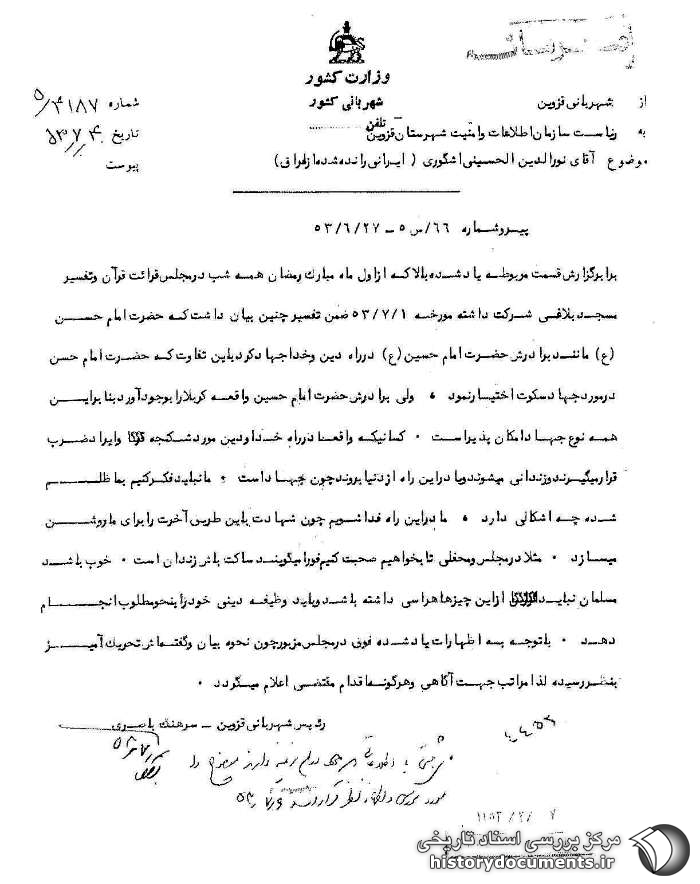 وزارت کشور
شهربانی کشور
شماره ۵/۴۱۸۷
از شهربانی قزوین
تلفن
به ریاست سازمان اطلاعات وامنیت شهرستان قزوین
تاریخ ۵۳/۷/۴
موضوع آقای نورالدین الحسینی اشکوری ( ایرانی رانده شده ازعراق )
پیوست
پیروشماره ۶۶/س ۵ - ۵۳/۶/۲۷
برابرگزارش قسمت مربوطه یاد شده بالاکه ازاول ماه مبارک رمضان همه شب درمجلس قرائت قرآن وتفسیر
مسجد بلاغی شرکت داشته مورخه ۵۳/۷/۱ ضمن تفسیر چنین بیان داشت که حضرت امام حسن
(ع) مانند برادرش حضرت امام حسین (ع) درراه دین وخداجهاد کرد باین تفاوت که حضرت امام حسن
درمورد جهاد سکوت اختیار نمود ۰ ولی برادرش حضرت امام حسین واقعه کربلارا بوجود آورد بنا براین
همه نوع جهاد امکان پذیراست ۰ کسانیکه واقعا درراه خدا ودین مورد شکنجه وایراد ضرب
قرارمیگیرند وزندانی میشوند ویا دراین راه ازدنیا بروند چون جهاد است ۰ مانباید فکرکنیم بما ظلم
شده چه اشکالی دارد ۰ ما دراین راه فدا شویم چون شهادت باین طریق آخرت را برای ما روشن
میسازد ۰ مثلا درمجلس ومحفلی تا بخواهیم صحبت کنیم فورا میگویند ساکت باش زندان است ۰ خوب باشد
مسلمان نباید ازاین چیزها هراسی داشته باشد وباید وظیفه دینی خودرا بنحو مطلوب انجام
دهد ۰ باتوجه به اظهارات یاد شده فوق درمجلس مزبور چون نحوه بیان وگفتارش تحریک آمیز
بنظر رسیده لذا مراتب جهت آگاهی وهرگونه اقدام مقتضی اعلام میگردد ۰
رئیس شهربانی قزوین - سرهنگ یاصری
مرکز بررسی اسناد تاریخی
historydocuments.ir